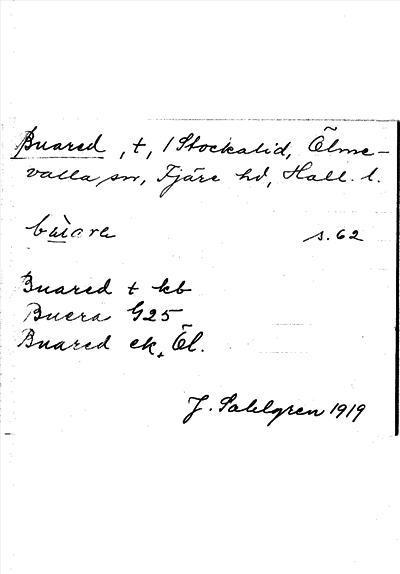 Buared, t, i Stockalid, Ölme-
valla sn, Fjäre hd, Hall. l.
bùare s. 62
Buared t kb
Buera G25
Buared ek, Öl.
J. Sahlgren 1919